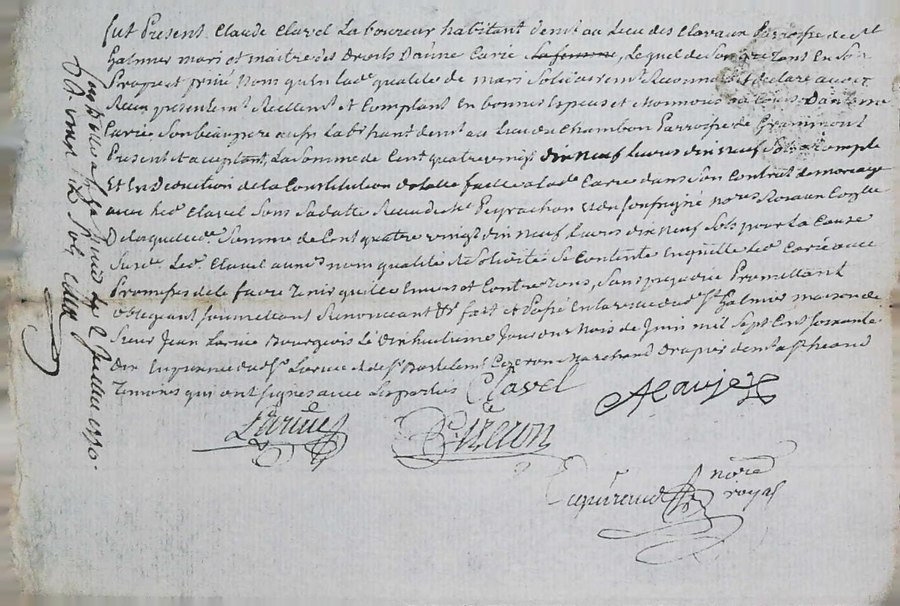 fut Present Claude Clavel Laboureur habitant demt au Lieu des Clavaux Parroisse de St
Galmier mari et maitre des Droits Danne Carié sa femme, Lequel de Son gré tant En Son
Propre et privé Nom qu'en lad. qualité de mari Solidairemt Reconnait et declare avoir
Reçu presentemt Reellemt et Comptant En bonnes Especes et Monnoies ayant Cours Dantoine
Carié Son beaupere aussy habitant demt au Lieu du Chambon Parroisse de Grammont
Present et acceptant, La Somme de Cent quatre vingt dix neuf Livres dix neuf Sols a Compte
Et En Deduction de la Constitution de dotte faitte a lad. Carié dans Son Contrat de mariage
avec led. Clavel Sous Sa datte Recu de Me Peyrachon et Nores Royaux
De laquelle de. Somme de Cent quatre vingt dix neuf Livres dix neuf Sols pour la Cause
Susd. Led. Clavel auxd. nom qualité et Solidité Se Contente En quitte led. Carié avec
Promesses de le faire tenir quitte Envers et Contre tous, Sans prejudice Promettant
obligeant Soumettant Renonceant &a fait et Passé En la ville de St Galmier maison de
Sieur Jean Larue Bourgeois Le dix huitieme Jour du Mois de Juin mil Sept Cent Soixante
Dix En presence dud. Sr Larue et de Sr Bartelemi Marchand Drapier demt a St heand
Temoins qui ont Signés avec Les parties
Clavel
Larue
nore
royal